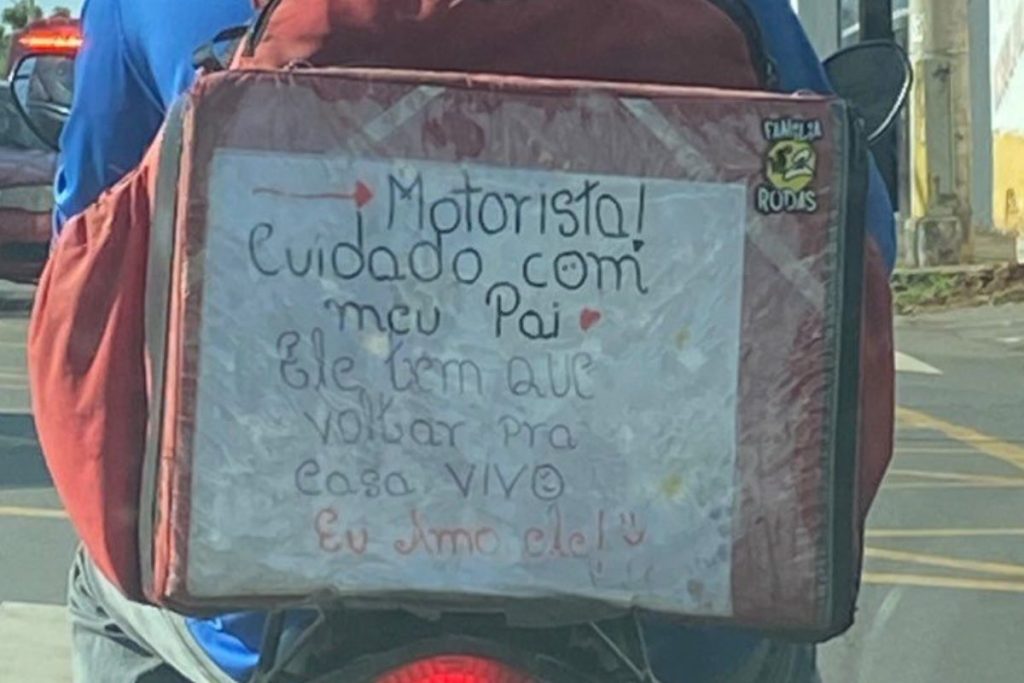 Motorista!
Cuidado com
meu Pai
Ele tem que
voltar pra
Casa VIVO
Eu Amo ele!
FAMÍLIA
2
RODAS